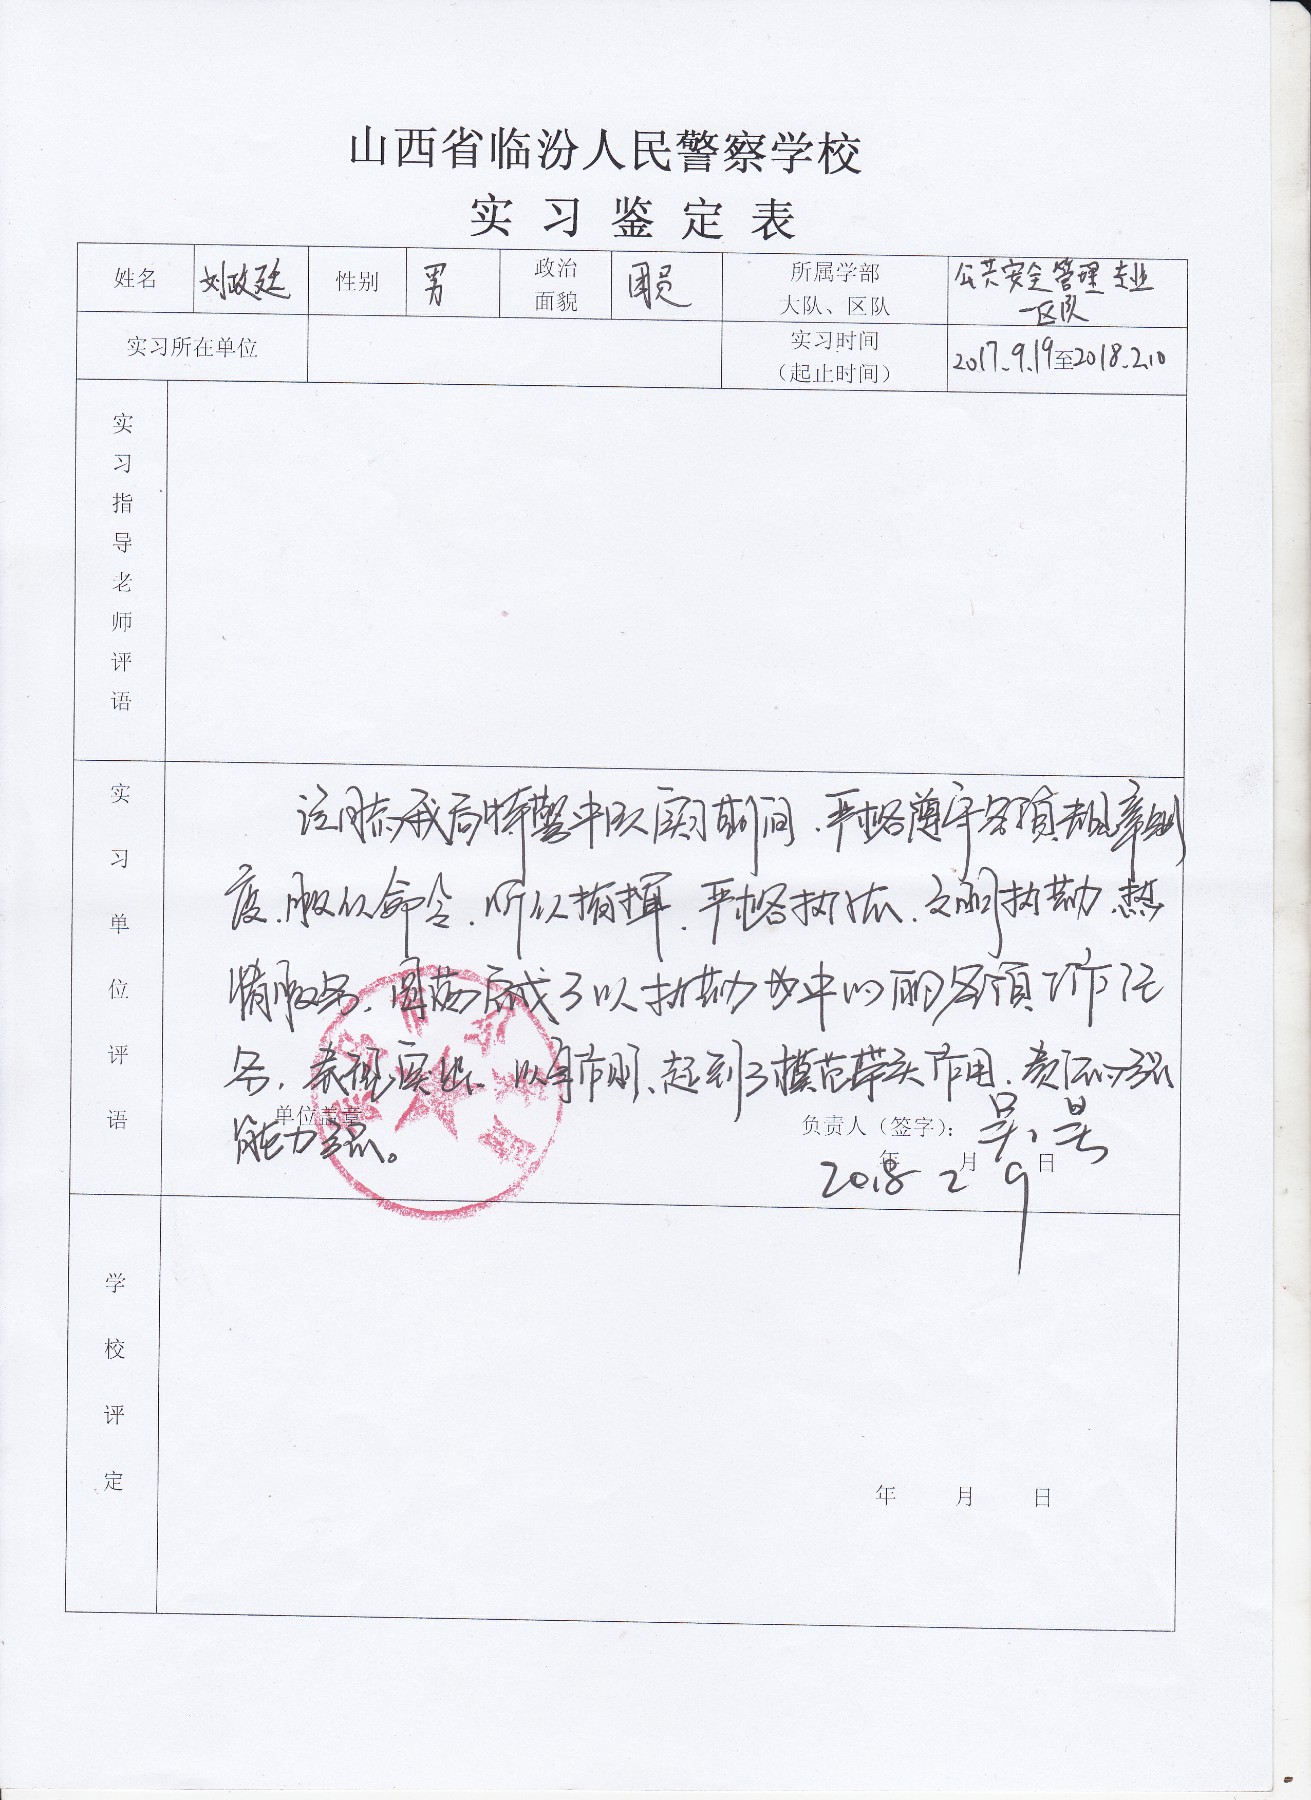 山西省临汾人民警察学校
实习鉴定表
姓名 刘政廷 性别 男 政治面貌 团员 所属学部大队、区队 公共安全管理专业一区队
实习所在单位 实习时间（起止时间） 2017.9.19至2018.2.10
实习指导老师评语
实习单位评语
该同志在我局特警中队实习期间，严格遵守各项规章制
度，服从命令，听从指挥，严格执法，文明执勤，热
情服务，圆满完成了以执勤为中心的各项工作任
务，表现突出，以身作则，起到了模范带头作用，责任心强
能力强。
单位盖章
负责人（签字）：
年 月 日
2018 2 9
学校评定
年 月 日